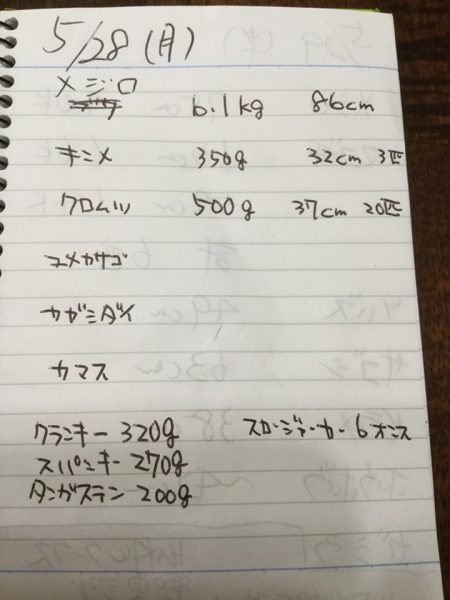 5/28 (月)
メジロ 6.1kg 86cm
キンメ 350g 32cm 3匹
クロムツ 500g 37cm 20匹
ユメカサゴ
カガミダイ
カマス
クランキー 320g スロージャーカー 6オンス
スパンキー 270g
タングステン 200g